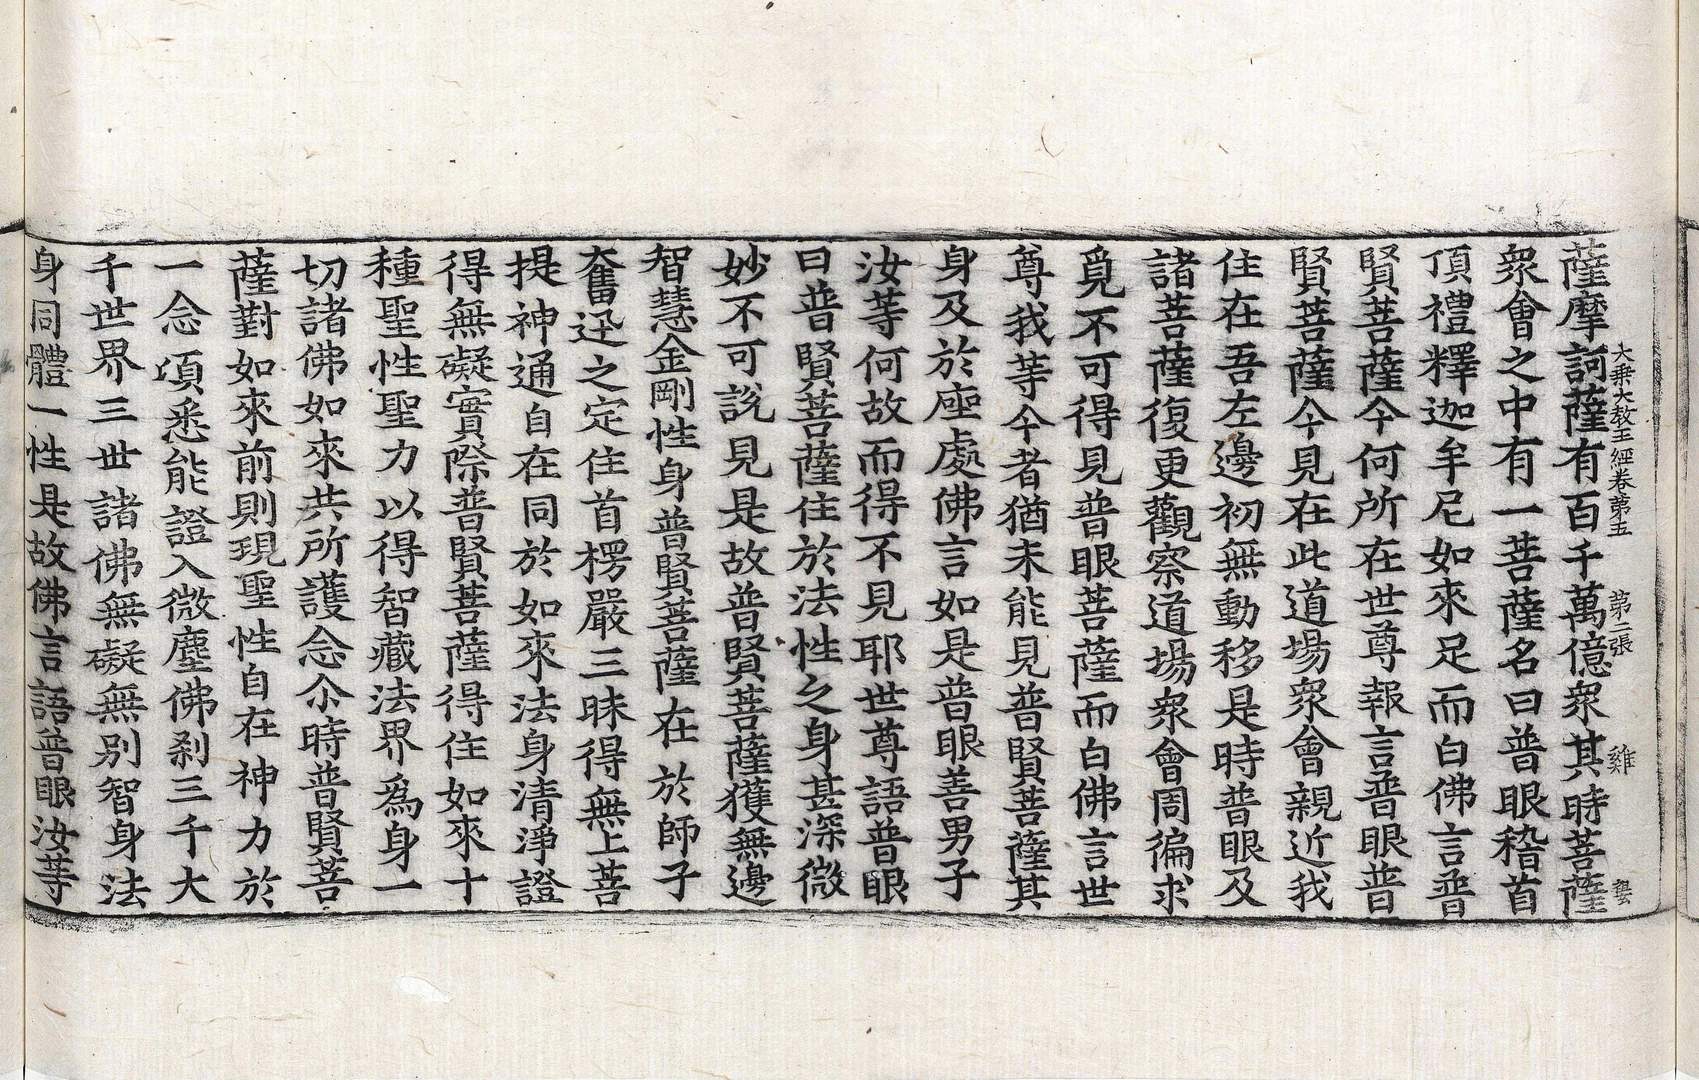 大乗大教王經卷第五 第二張 雞
薩摩訶薩有百千萬億衆其時菩薩
衆會之中有一菩薩名曰普眼稽首
頂禮釋迦牟尼如來足而白佛言普
賢菩薩今何所在世尊報言普眼普
賢菩薩今見在此道場衆會親近我
住在吾左邊初無動移是時普眼及
諸菩薩復更觀察道場衆會周徧求
覓不可得見普眼菩薩而白佛言世
尊我等今者猶未能見普賢菩薩其
身及於座處佛言如是普眼善男子
汝等何故而得不見耶世尊語普眼
曰普賢菩薩住於法性之身甚深微
妙不可說見是故普賢菩薩獲無邊
智慧金剛性身普賢菩薩在於師子
奮迅之定住首楞嚴三昧得無上菩
提神通自在同於如來法身清淨證
得無礙實際普賢菩薩得住如來十
種聖性聖力以得智藏法界為身一
切諸佛如來共所護念尒時普賢菩
薩對如來前則現聖性自在神力於
一念頃悉能證入微塵佛剎三千大
千世界三世諸佛無礙無別智身法
身同體一性是故佛言語普眼汝等